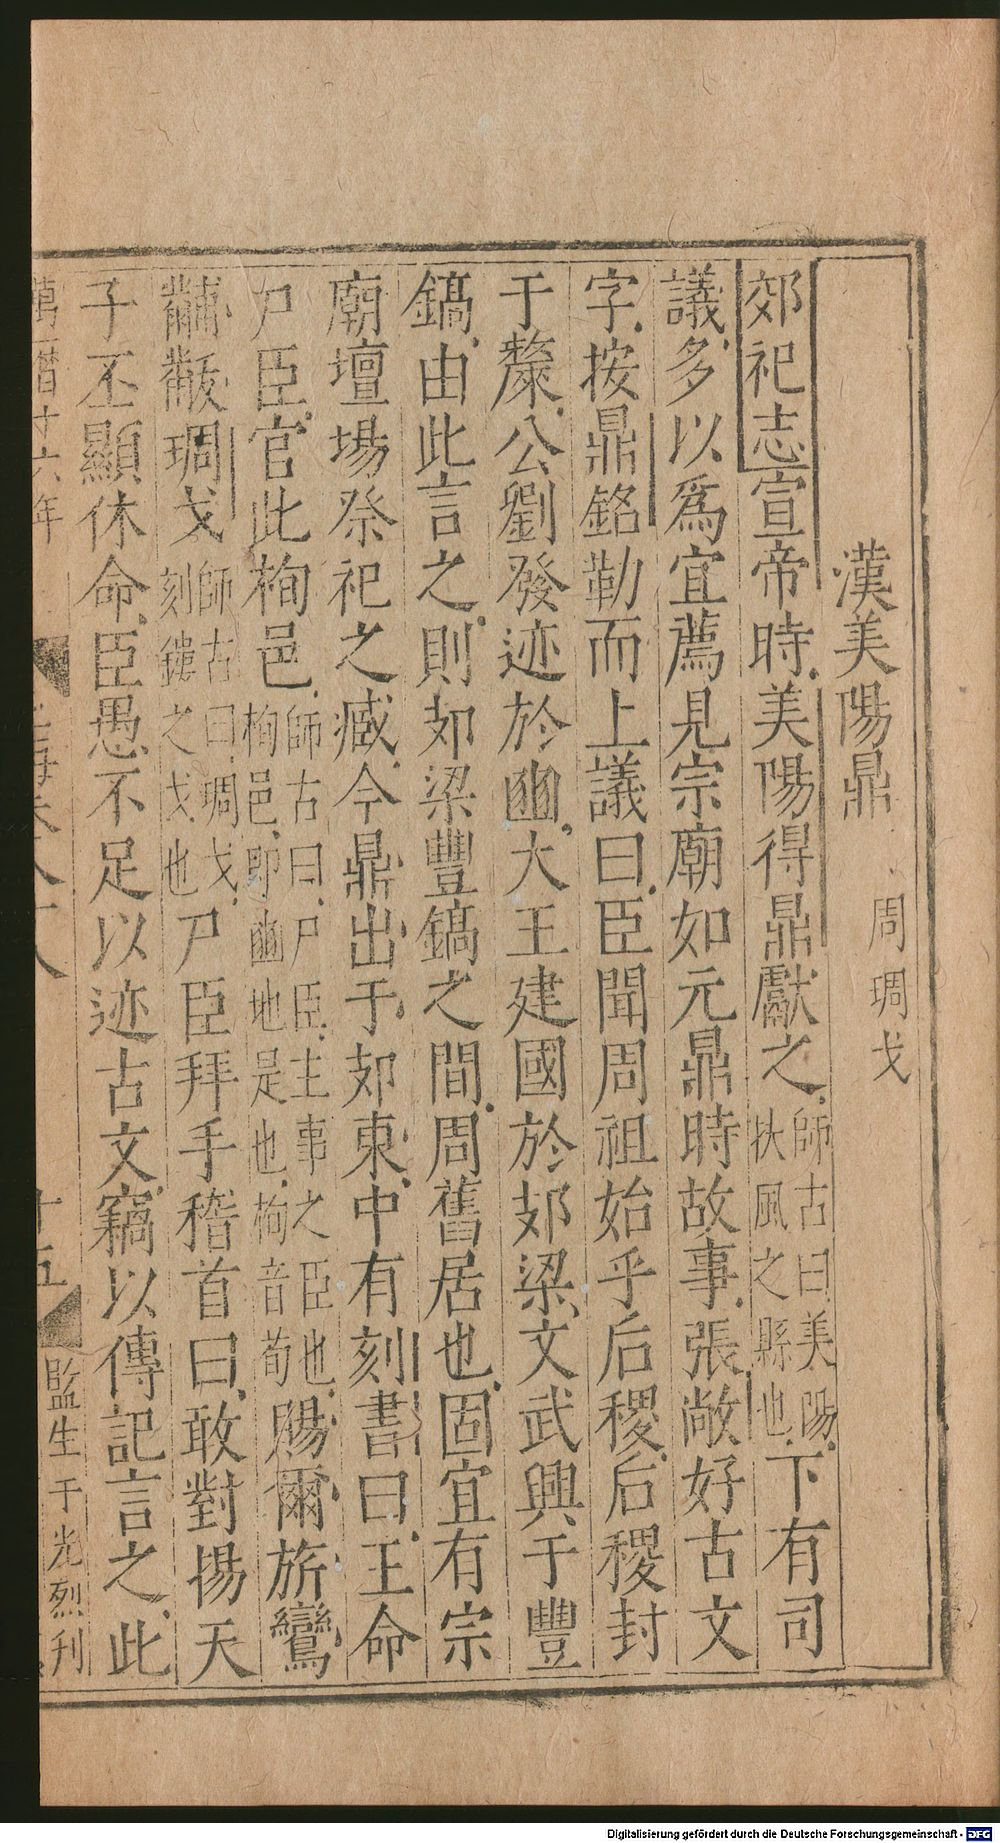 漢美陽鼎 周琱戈
郊祀志宣帝時美陽得鼎獻之師古曰美陽扶風之縣也下有司
議多以爲宜薦見宗廟如元鼎時故事張敞好古文
字按鼎銘勒而上議曰臣聞周祖始乎后稷后稷封
于斄公劉發迹於豳大王建國於郊梁文武興于豐
鎬由此言之則郊梁豐鎬之間周舊居也固宜有宗
廟壇場祭祀之臧今鼎出于郊東中有刻書曰王命
尸臣官此栒邑師古曰尸臣主事之臣也栒邑卽豳地是也栒音荀賜爾旂鸞
黼黻琱戈師古曰琱戈刻鏤之戈也尸臣拜手稽首曰敢對揚天
子丕顯休命臣愚不足以迹古文竊以傳記言之此
萬曆十六年 十五 監生于光烈刊
Digitalisierung gefördert durch die Deutsche Forschungsgemeinschaft - DFG